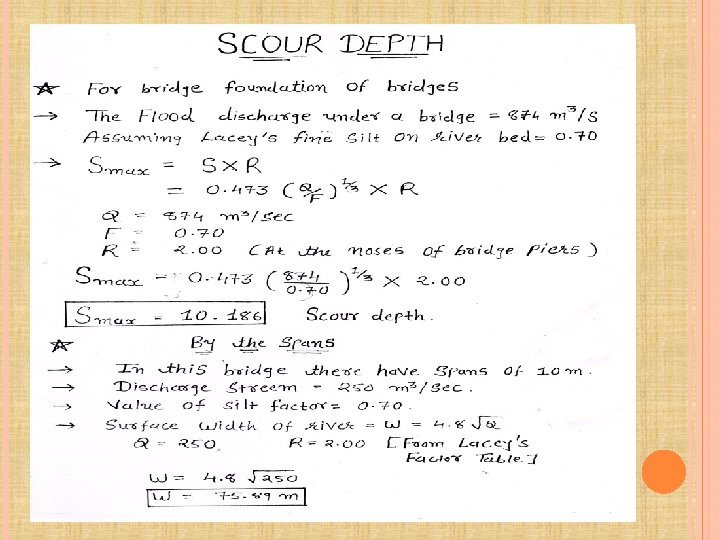 SCOUR DEPTH
☆ For bridge foundation of bridges
→ The Flood discharge under a bridge = 874 m³/s
Assuming Lacey's fine silt on river bed = 0.70
→ Smax = S X R
= 0.473 (Q/F)^1/3 X R
Q = 874 m³/sec
F = 0.70
R = 2.00 (At the noses of bridge piers)
Smax = 0.473 (874/0.70)^1/3 X 2.00
Smax = 10.186 Scour depth.
☆ By the Spans
→ In this bridge there have spans of 10 m.
→ Discharge Streem = 250 m³/sec.
→ Value of silt factor = 0.70.
→ Surface width of river = W = 4.8 √Q
Q = 250 R = 2.00 [From Lacey's
Factor Table]
W = 4.8 √250
W = 75.89 m